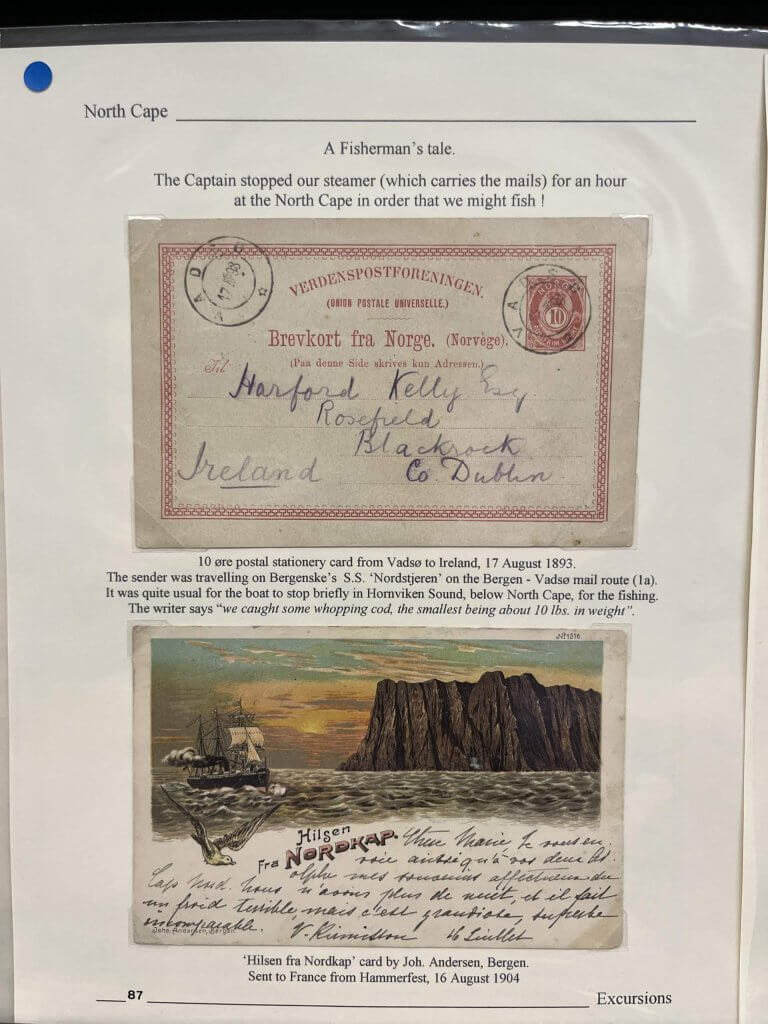 North Cape
A Fisherman's tale.
The Captain stopped our steamer (which carries the mails) for an hour
at the North Cape in order that we might fish !
VADSØ
17 VIII 93
VERDENSPOSTFORENINGEN.
(UNION POSTALE UNIVERSELLE.)
VADSØ
NORGE
10
Brevkort fra Norge. (Norvège).
(Paa denne Side skrives kun Adressen.)
Til
Harford Kelly Esq.
Rosefield
Blackrock
Ireland Co. Dublin
10 øre postal stationery card from Vadsø to Ireland, 17 August 1893.
The sender was travelling on Bergenske's S.S. 'Nordstjeren' on the Bergen - Vadsø mail route (1a).
It was quite usual for the boat to stop briefly in Hornviken Sound, below North Cape, for the fishing.
The writer says "we caught some whopping cod, the smallest being about 10 lbs. in weight".
No 1516.
Hilsen
Fra NORDKAP.
Chère Marie, Je vous en-
voie ainsi qu'à vos deux
mes souvenirs affectueux du
Cap Nord. Nous n'avons plus de nuit, et il fait
un froid terrible, mais c'est grandiose, superbe
incomparable.
16 Juillet
Joh. Andersen, Bergen.
'Hilsen fra Nordkap' card by Joh. Andersen, Bergen.
Sent to France from Hammerfest, 16 August 1904
87
Excursions